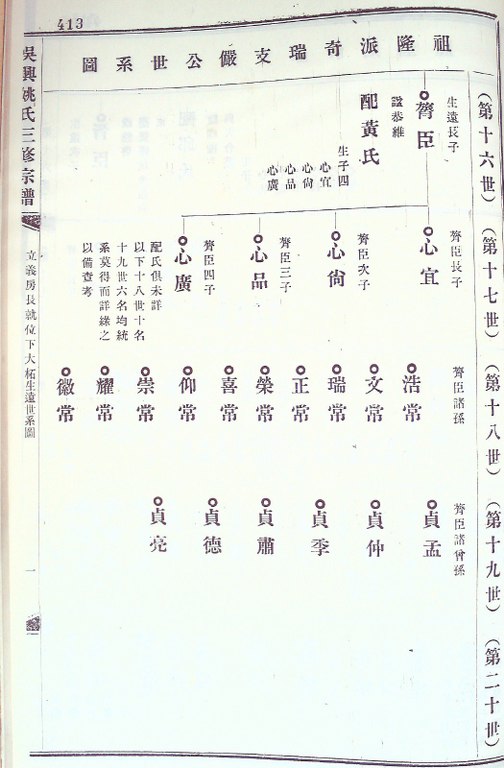 413
祖隆派奇瑞支儼公世系圖
吳興姚氏三修宗譜
立義房長就位下大柘生遠世系圖
一
(第十六世)
生遠長子
齊臣
諡恭維
配黃氏
生子四
心宜
心尙
心品
心廣
(第十七世)
齊臣長子
心宜
齊臣次子
心尙
齊臣三子
心品
齊臣四子
心廣
配氏俱未詳
以下十八世十名
十九世六名均統
系莫得而詳緣之
以備查考
(第十八世)
齊臣諸孫
浩常
文常
瑞常
正常
榮常
喜常
仰常
崇常
耀常
徽常
(第十九世)
齊臣諸曾孫
貞孟
貞仲
貞季
貞肅
貞德
貞亮
(第二十世)